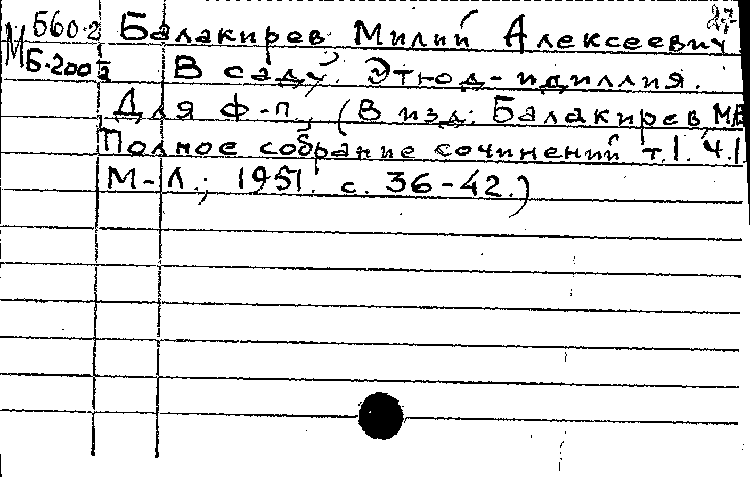 27
М 560-2 Балакирев Милий Алексеевич
Б-200 В саду. Этюд-идиллия.
Для ф-п. (В изд: Балакирев М.А.
Полное собрание сочинений т.1. ч.1
М-Л., 1951. с. 36-42.)